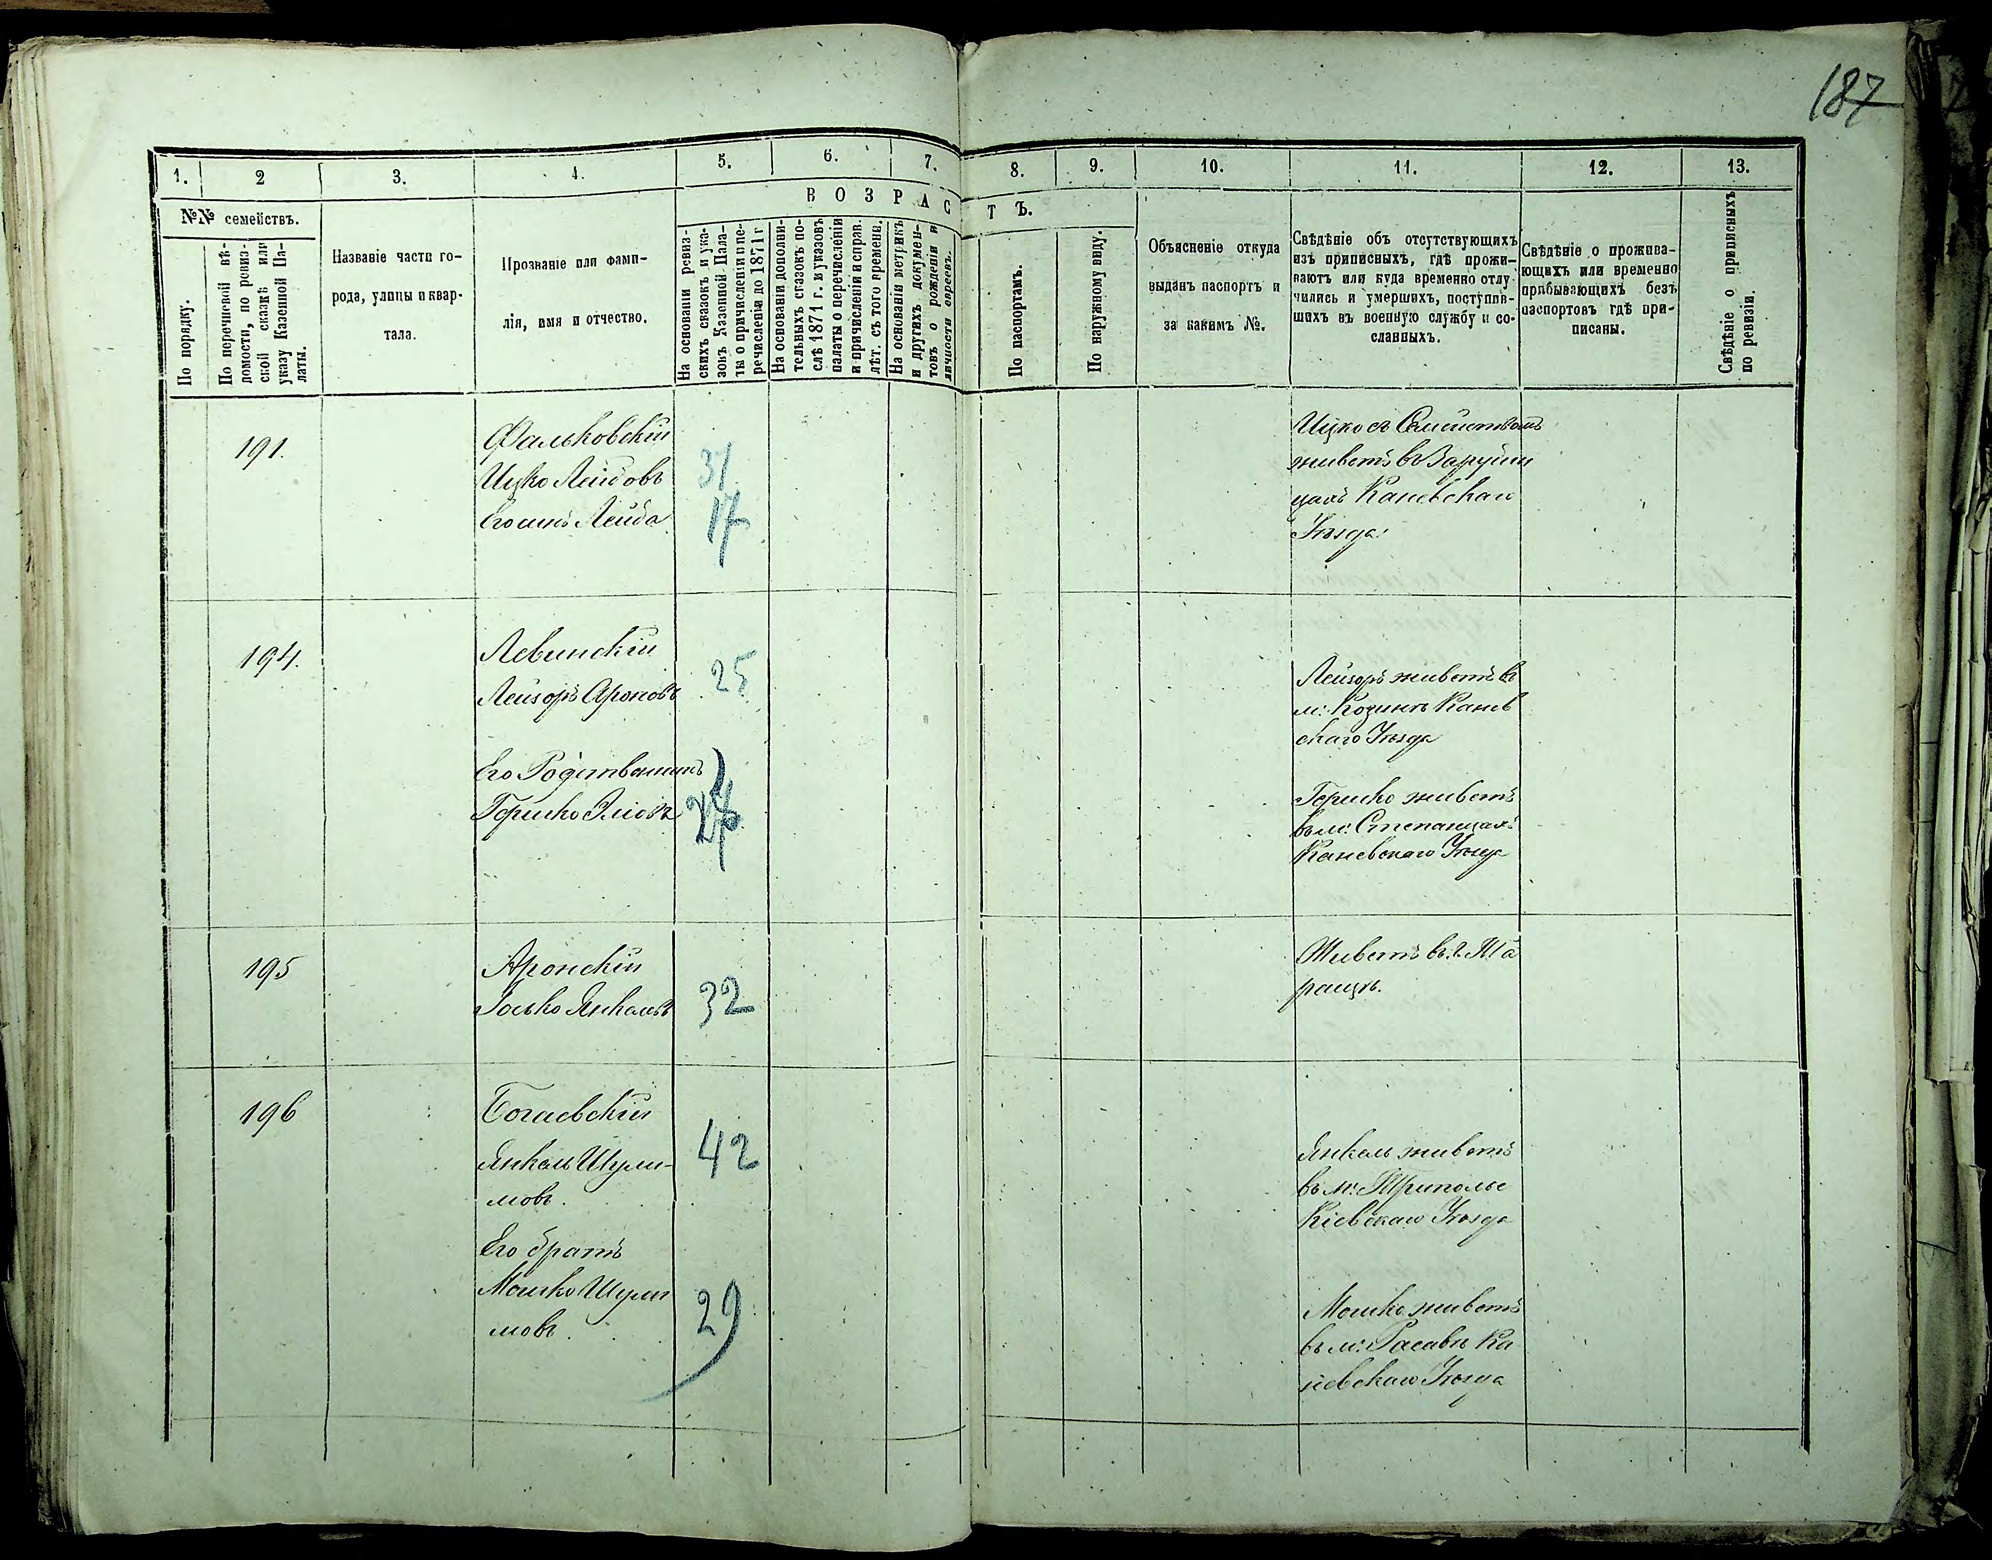 187
1. 2 3. 4. 5. 6. 7. 8. 9. 10. 11. 12. 13.
№№ семействъ.
ВОЗРАСТЪ.
По порядку.
По перечневой вѣ-
домости, по ревиз-
ской сказкѣ или
указу Казенной Па-
латы.
Названіе части го-
рода, улицы и квар-
тала.
Прозваніе или фами-
лія, имя и отчество.
На основаніи ревиз-
скихъ сказокъ и ука-
зовъ Казенной Пала-
ты о причисленіи и пе-
речисленіи до 1871 г
На основаніи дополни-
тельныхъ сказокъ по-
слѣ 1871 г. и указовъ
палаты о перечисленіи
и причисленіи и справ.
лѣт. съ того времени.
На основаніи метрикъ
и другихъ докумен-
товъ о рожденіи и
личности евреевъ.
По паспортамъ.
По наружному виду.
Объясненіе откуда
выданъ паспортъ и
за какимъ №.
Свѣдѣніе объ отсутствующихъ
изъ приписныхъ, гдѣ прожи-
ваютъ или куда временно отлу-
чились и умершихъ, поступив-
шихъ въ военную службу и со-
сланныхъ.
Свѣдѣніе о прожива-
ющихъ или временно
прибывающихъ безъ
паспортовъ гдѣ при-
писаны.
Свѣдѣніе о приписныхъ
по ревизіи.
191.
Фальковскій
Ицко Лейбовъ 31
Его сынъ Лейба 17
Ицко съ Семействомъ
живетъ въ
цахъ Каневскаго
Уѣзда
194.
Левинскій
Лейзоръ Ароновъ 25
Лейзоръ живетъ въ
м: Козинѣ Канев
скаго Уѣзда
Его Родственникъ
Гершко
Гершко живетъ
въ м: Степанцахъ
Каневскаго Уѣзда
195
Аронскій
Іосько Янкелевъ 32
Живетъ въ г. Та
ращѣ.
196
Богаевскій
Янкель Шули- 42
мовъ.
Янкель живетъ
въ м: Триполье
Кіевскаго Уѣзда
Его братъ
Мошко Шули 29
мовъ.
Мошко живетъ
въ м: Расавѣ Ка
невскаго Уѣзда